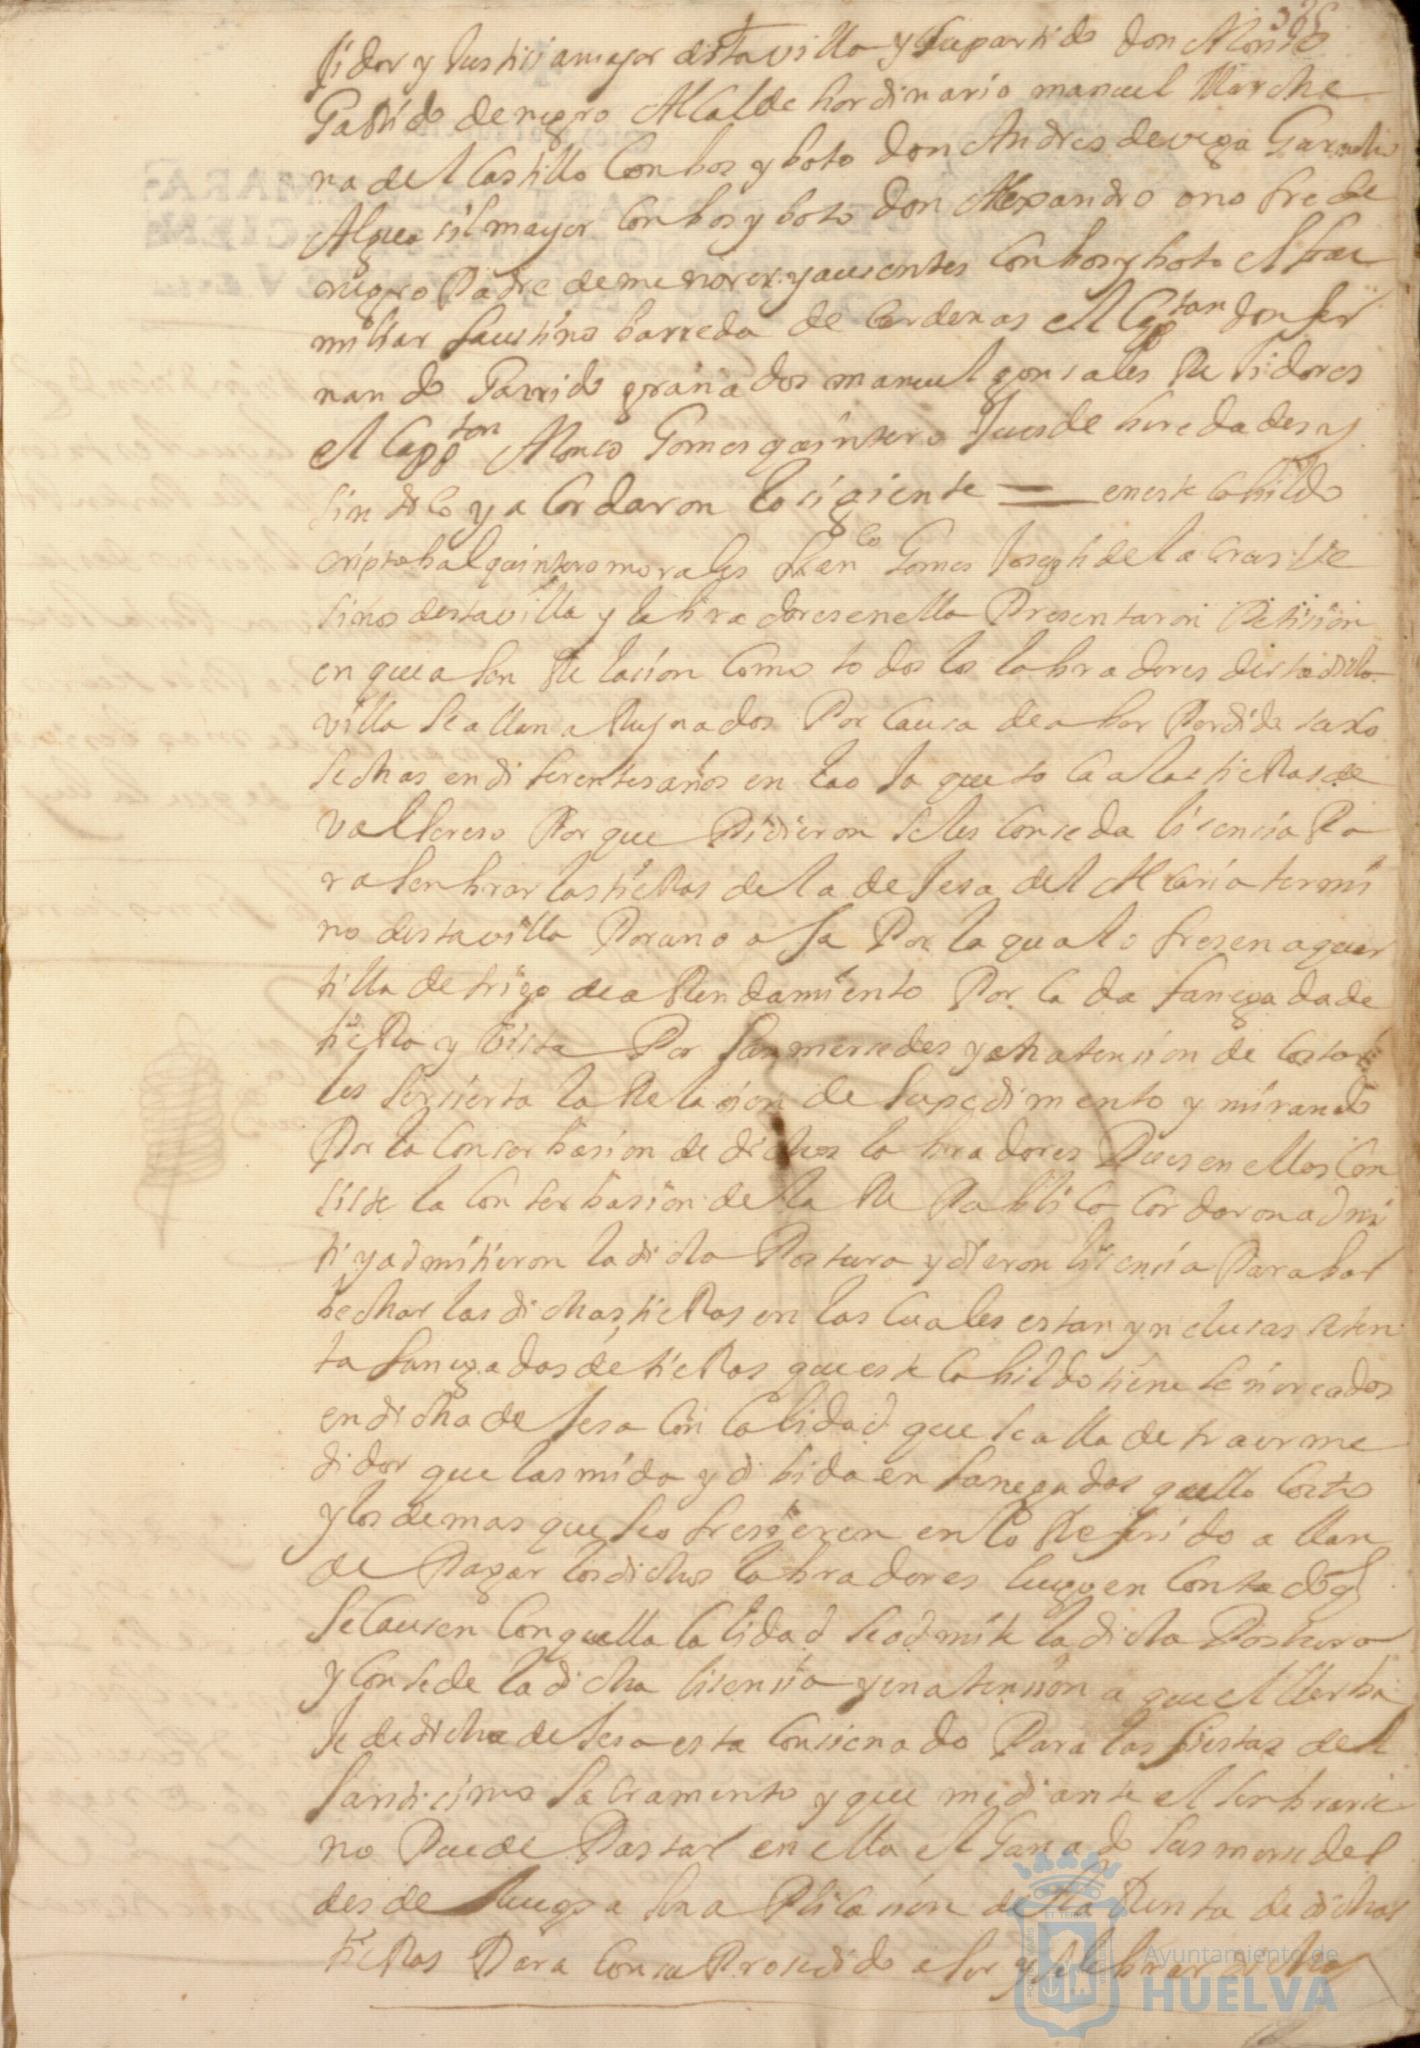 sidor y Justisia mayor desta villa y su partido don Alonso
Garrido de negro Alcalde hordinario manuel Marche
na del Castillo Con bos y boto don Andres de vega Garrocho
Alguasil mayor Con bos y boto don Alexandro onofre de
negro Padre de menores y ausentes Con bos y boto el fa
miliar faustino barreda de Cardenas el Cappitan don fer
nando Garrido granados manuel gonsales Residores
el Cappitan Alonso Gomes quintero Jues de heredades y
sindico y acordaron lo sigiente — en este Cabildo
criptobal quintero morales franco Gomes Joseph de la Crus Ve
sinos desta villa y labradores en ella Presentaron Petision
en que asen Relasion Como todos los labradores desta dicha
villa se allan aRuynados Por Causa de aber Perdido sus Co
sechas en diferentes años en lo que toca a las tieRas de
Porque Pidieron se les Conseda lisensia Pa
ra senbrar las tieRas de la desesa del Alcaria termi
no desta villa Por año o sa Por la qual ofresen a quar
tilla de trigo de aRendamiento Por cada fanegada de
tieRa y Vista Por sus mersedes y en atension de Costar
les ser sierta la Relasion de su pedimento y mirando
Por la Conserbasion de dichos labradores Pues en ellos Con
siste la Conserbasion de la RePublica Cordaron admi
tir y admitieron la dicha Postura y dieron lisensia Para bar
bechar las dichas tieRas en las Cuales estan ynclusas seten
ta fanegadas de tieRas que este Cabildo tiene señoreados
en dicha desesa Con Calidad que se alla de traer me
didor que las mida y dibida en fanegadas quello Costo
y los demas que se ofresieren en lo Referido a llan
de Pagar los dichos labradores luego en Contado q
se Causen Con quella Calidad se admite la dicha Postura
y Consede la dicha lisensia y en atension a que el llerba
je de dicha desesa esta Consinado Para las fiestas del
santisimo sacramento y que mediante el senbrarse
no Puede Pastar en ella el Ganado sus mersedes
desde luego asen aPlicasion de la Renta de dichas
tieRas Para Con su Prosedido aser y selebrar dichas
Ayuntamiento de
HUELVA